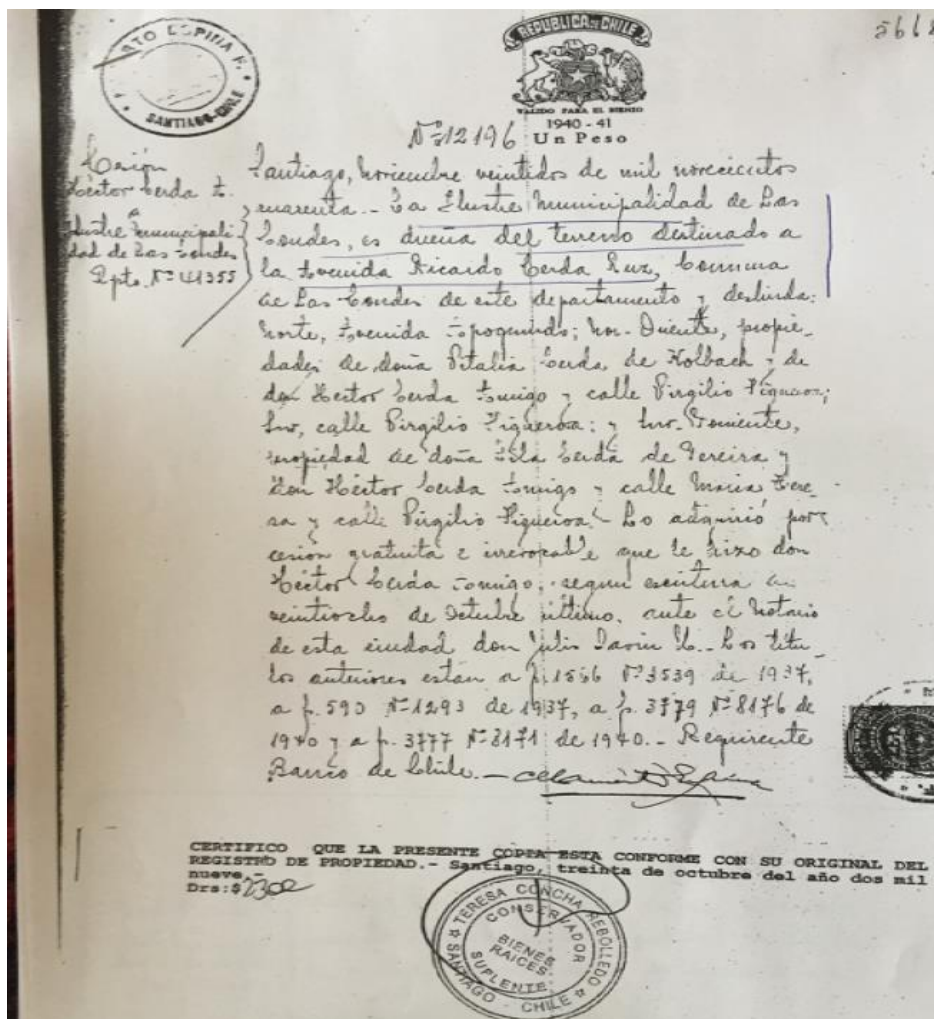 REPUBLICA DE CHILE
VALIDO PARA EL BIENIO
1940-41
Un Peso
RTO ESPINA R.
SANTIAGO-CHILE
Nº 12196
Cesión
Héctor Cerda A.
a
Ilustre Municipali-
dad de Las Condes
Rpto. Nº 41355
Santiago, Noviembre veintidos de mil novecientos
cuarenta.- La Ilustre Municipalidad de Las
Condes, es dueña del terreno destinado a
la Avenida Ricardo Cerda Ruz, Comuna
de Las Condes de este departamento y deslinda:
Norte, Avenida Apoquindo; Nor-Oriente, propie-
dades de doña Vitalia Cerda de Kolbach y de
don Hector Cerda Amigo y calle Virgilio Figueroa;
Sur, calle Virgilio Figueroa; y Sur-Poniente,
propiedad de doña Cerda de Pereira y
don Héctor Cerda Amigo y calle Maria Tere-
sa y calle Virgilio Figueroa.- Lo adquirió por
cesion gratuita e irrevocable que le hizo don
Héctor Cerda Amigo, segun escritura de
veintiocho de Octubre último, ante el Notario
de esta ciudad don Julio Los títu-
los anteriores están a f. 1556 Nº 3539 de 1937,
a f. 590 Nº 1293 de 1937, a f. 3779 Nº 8176 de
1940 y a f. 3777 Nº 8171 de 1940.- Requirente
Banco de Chile.-
CERTIFICO QUE LA PRESENTE COPIA ESTA CONFORME CON SU ORIGINAL DEL
REGISTRO DE PROPIEDAD.- Santiago, treinta de octubre del año dos mil
nueve.-
Drs:$2300
TERESA CONCHA REBOLLEDO
CONSERVADOR
BIENES
RAICES
SUPLENTE
SANTIAGO - CHILE